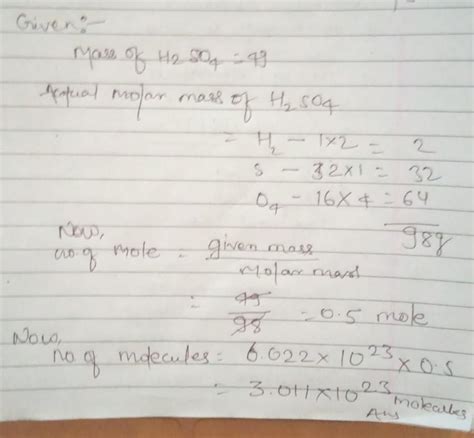 Given:-
Mass of H2SO4 = 49
Actual molar mass of H2SO4
= H2 - 1×2 = 2
S - 32×1 = 32
O4 - 16×4 = 64
98g
Now,
no. of mole = given mass
Molar mass
= 49
98 = 0.5 mole
Now,
no of molecules = 6.022×10²³ × 0.5
= 3.011×10²³ molecules
Ans